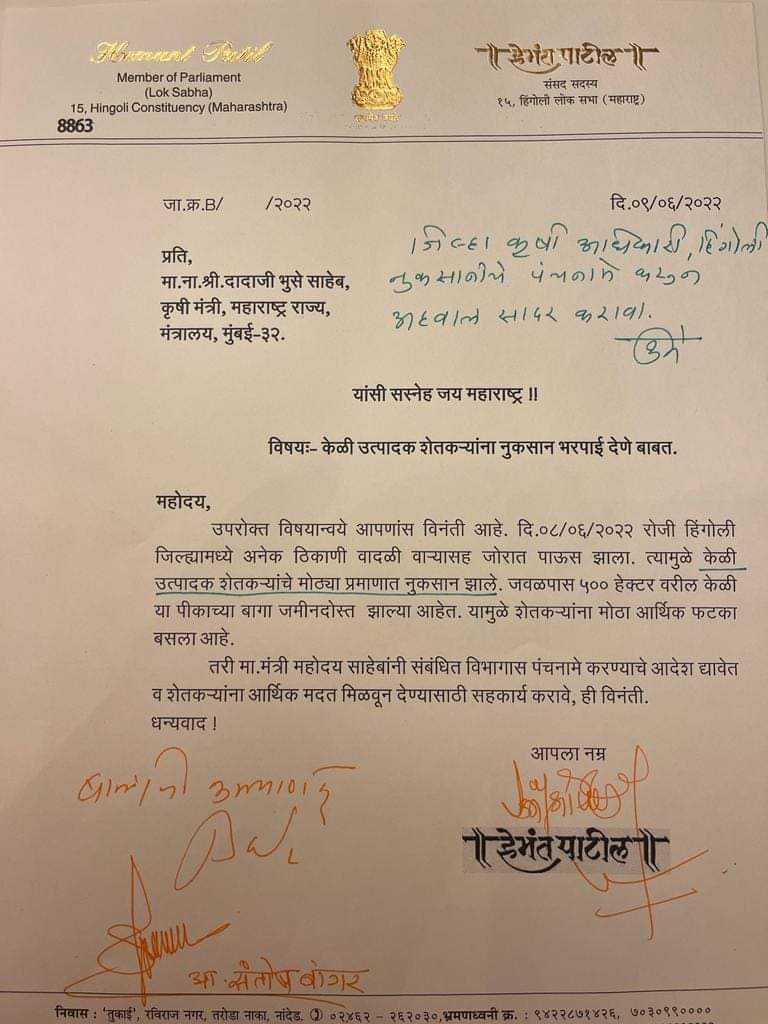 Hemant Patil
Member of Parliament
(Lok Sabha)
15, Hingoli Constituency (Maharashtra)
8863
॥ हेमंत पाटील ॥
संसद सदस्य
१५, हिंगोली लोक सभा (महाराष्ट्र)
जा.क्र.B/ /२०२२
दि.०९/०६/२०२२
जिल्हा कृषी अधिकारी, हिंगोली
नुकसानीचे पंचनामे करुन
अहवाल सादर करावा.
प्रति,
मा.ना.श्री.दादाजी भुसे साहेब,
कृषी मंत्री, महाराष्ट्र राज्य,
मंत्रालय, मुंबई-३२.
यांसी सस्नेह जय महाराष्ट्र !!
विषयः- केळी उत्पादक शेतकऱ्यांना नुकसान भरपाई देणे बाबत.
महोदय,
उपरोक्त विषयान्वये आपणांस विनंती आहे. दि.०८/०६/२०२२ रोजी हिंगोली
जिल्ह्यामध्ये अनेक ठिकाणी वादळी वाऱ्यासह जोरात पाऊस झाला. त्यामुळे केळी
उत्पादक शेतकऱ्यांचे मोठ्या प्रमाणात नुकसान झाले. जवळपास ५०० हेक्टर वरील केळी
या पीकाच्या बागा जमीनदोस्त झाल्या आहेत. यामुळे शेतकऱ्यांना मोठा आर्थिक फटका
बसला आहे.
तरी मा.मंत्री महोदय साहेबांनी संबंधित विभागास पंचनामे करण्याचे आदेश द्यावेत
व शेतकऱ्यांना आर्थिक मदत मिळवून देण्यासाठी सहकार्य करावे, ही विनंती.
धन्यवाद !
आपला नम्र
॥ हेमंत पाटील ॥
आ. संतोष बांगर
निवास : 'तुकाई', रविराज नगर, तरोडा नाका, नांदेड. ०२४६२ - २६२०३०,भ्रमणध्वनी क्र. : ९४२२८७१४२६, ७०३०९९००००